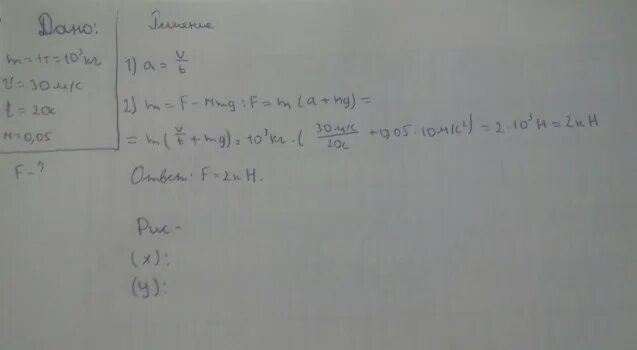 Дано:
m=1т=10³кг
V=30м/с
t=20с
м=0,05
F-?
Решение
1) a = V/t
2) m = F-мmg; F=m(a+мg)=
=m(V/t+мg)=10³кг·(30м/с/20с+0,05·10м/с²)=2·10³Н=2кН
Ответ: F=2кН.
Рис-
(x):
(y):